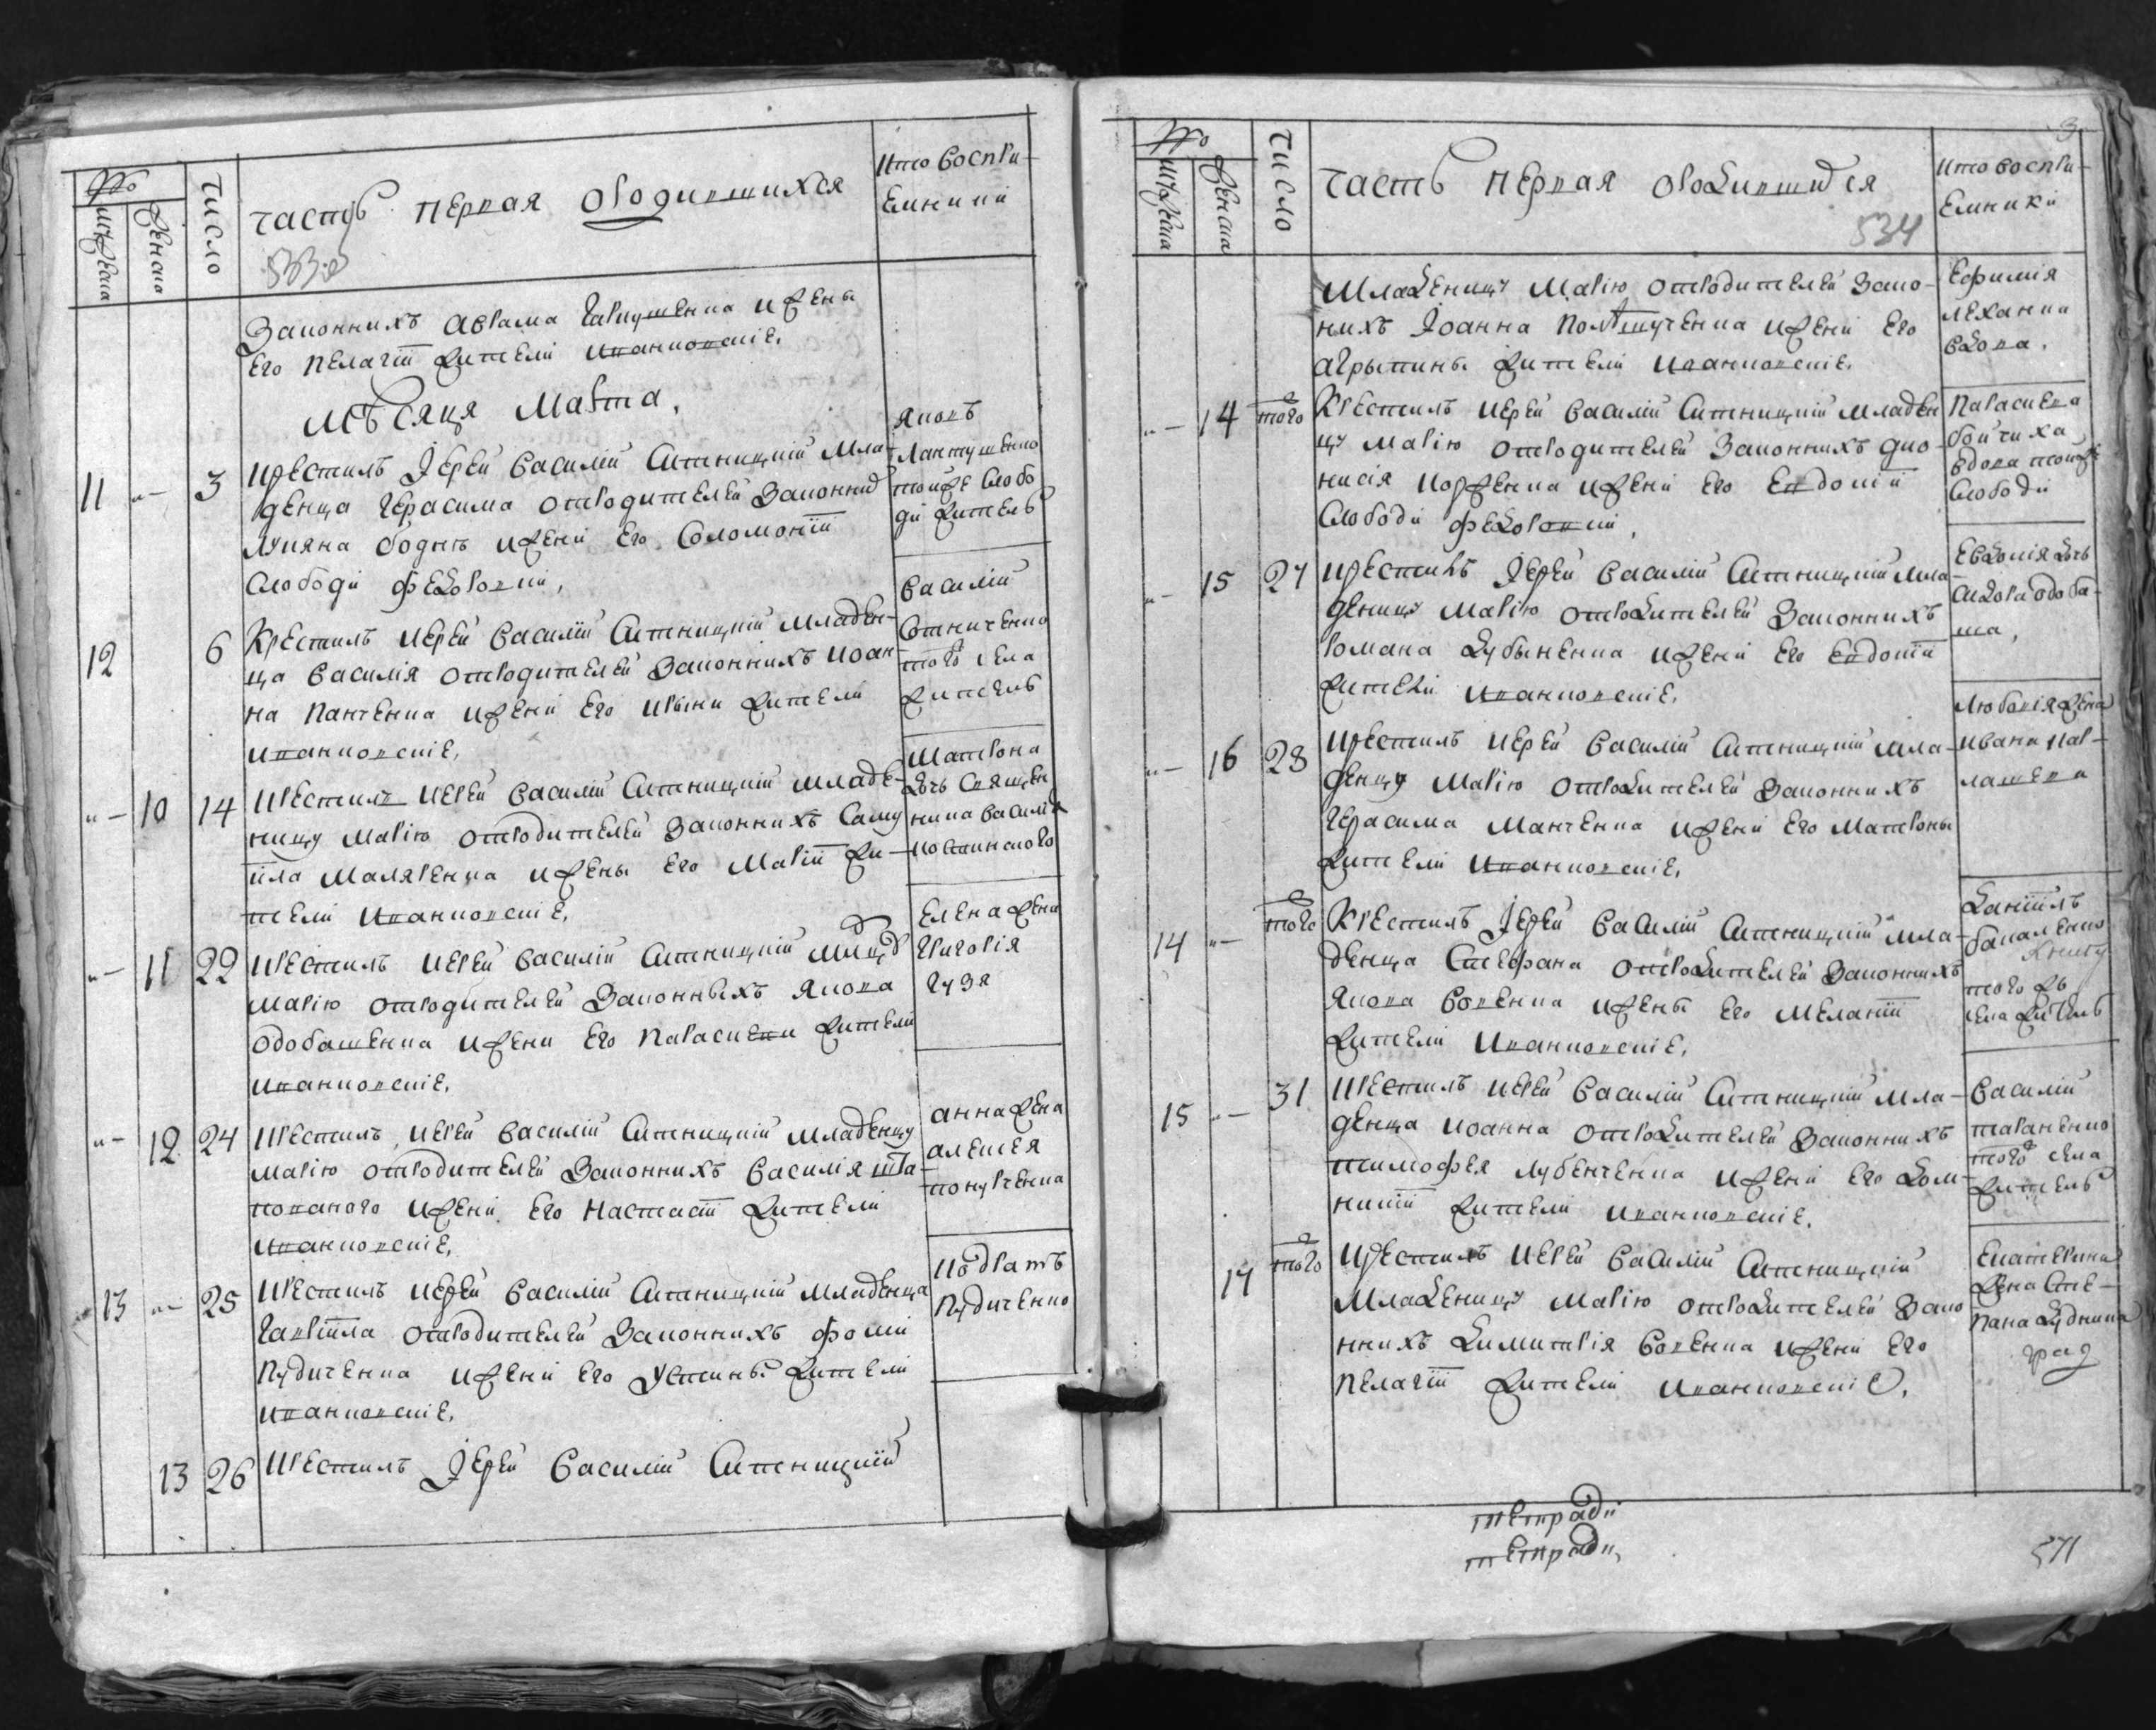 №
мужеска
женска
число
часть первая о родившихся
533
кто воспри-
емники
законнихъ Аврама Гапушенка и жены
его Пелагіи жители иванковскіе.
Мѣсяця Марта,
11 "– 3
крестилъ Іерей Василій Ситницкій мла-
денца Герасима отродителей законних
Лукяна Бодня и жени его Соломоніи
слободи Федоровки,
Яковъ
Лантушенко
тойже слобо
ди житель
12 6
Крестилъ иерей Василій Ситницкій младен-
ца Василія отродителей законнихъ Иоан-
на Панченка и жени его Ирини жители
иванковскіе,
Василій
Сотниченко
того села
житель
"– 10 14
Крестилъ иерей Василій Ситницкій младе-
ницу Марію отродителей законнихъ Саму
їила Маляренка и жены его Маріи жи-
тели иванковскіе,
Матрона
дочь священ
ника Василія
"– 11 22
Крестилъ иерей Василій Ситницкій млцд
Марію отродителей законныхъ Якова
Одобашенка и жени его Параскеви жители
иванковскіе,
Елена жена
Григорія
Гузя
"– 12 24
Крестилъ иерей Василій Ситницкій младенцу
Марію отродителей законнихъ Василія
и жени его Настасіи жители
иванковскіе,
Анна жена
Алексея
13 "– 25
Крестилъ иерей Василій Ситницкій младенца
Гавріїла отродителей законнихъ Фоми
Пудиченка и жени его Устины жители
иванковскіе,
Кодратъ
Пудиченко
13 26
Крестилъ Іерей Василій Ситницкій
№
мужеска
женска
число
часть первая о родившихся
534
кто воспри-
емники
3
младеницу Марію отродителей зако-
нихъ Іоанна и жени его
Агрыпины жители иванковскіе.
Ефимія
вдова.
"– 14 того
Крестилъ иерей Василій Ситницкій младен
цу Марію отродителей законнихъ Дио-
нисія Корженка и жени его Евдокіи
слободи Федоровки,
Параскева
Бойчиха
вдова тойже
слободи
"– 15 27
крестилъ Іерей Василій Ситницкій мла-
деницу Марію отродителей законнихъ
Романа Дубыненка и жени его Евдокіи
жители иванковскіе,
Евдокія дочь
Сидора Одоба-
ша,
"– 16 28
крестилъ иерей Василій Ситницкій мла-
денцу Марію отродителей законнихъ
Герасима Манченка и жени его Матроны
жители иванковскіе,
Любовія жена
Ивана Кар-
лашева
14 "– того
Крестилъ Іерей Василій Ситницкій мла-
денца Стефана отродителей законнихъ
Якова Вовченка и жены его Меланіи
жители иванковскіе,
Даніилъ
Бакаленко
тогожъ
села житель
15 "– 31
Крестилъ иерей Василій Ситницкій мла-
денца Иоанна отродителей законнихъ
Тимофея Лубенченка и жени его Дом-
никіи жители иванковскіе.
Василій
Тараненко
того села
житель
17 того
крестилъ иерей Василій Ситницкій
младеницу Марію отродителей зако
ннихъ Димитрія Вовченка и жени его
Пелагіи жители иванковскіе,
Екатерина
жена Сте-
пана Дудника
тетради
тетради,
571